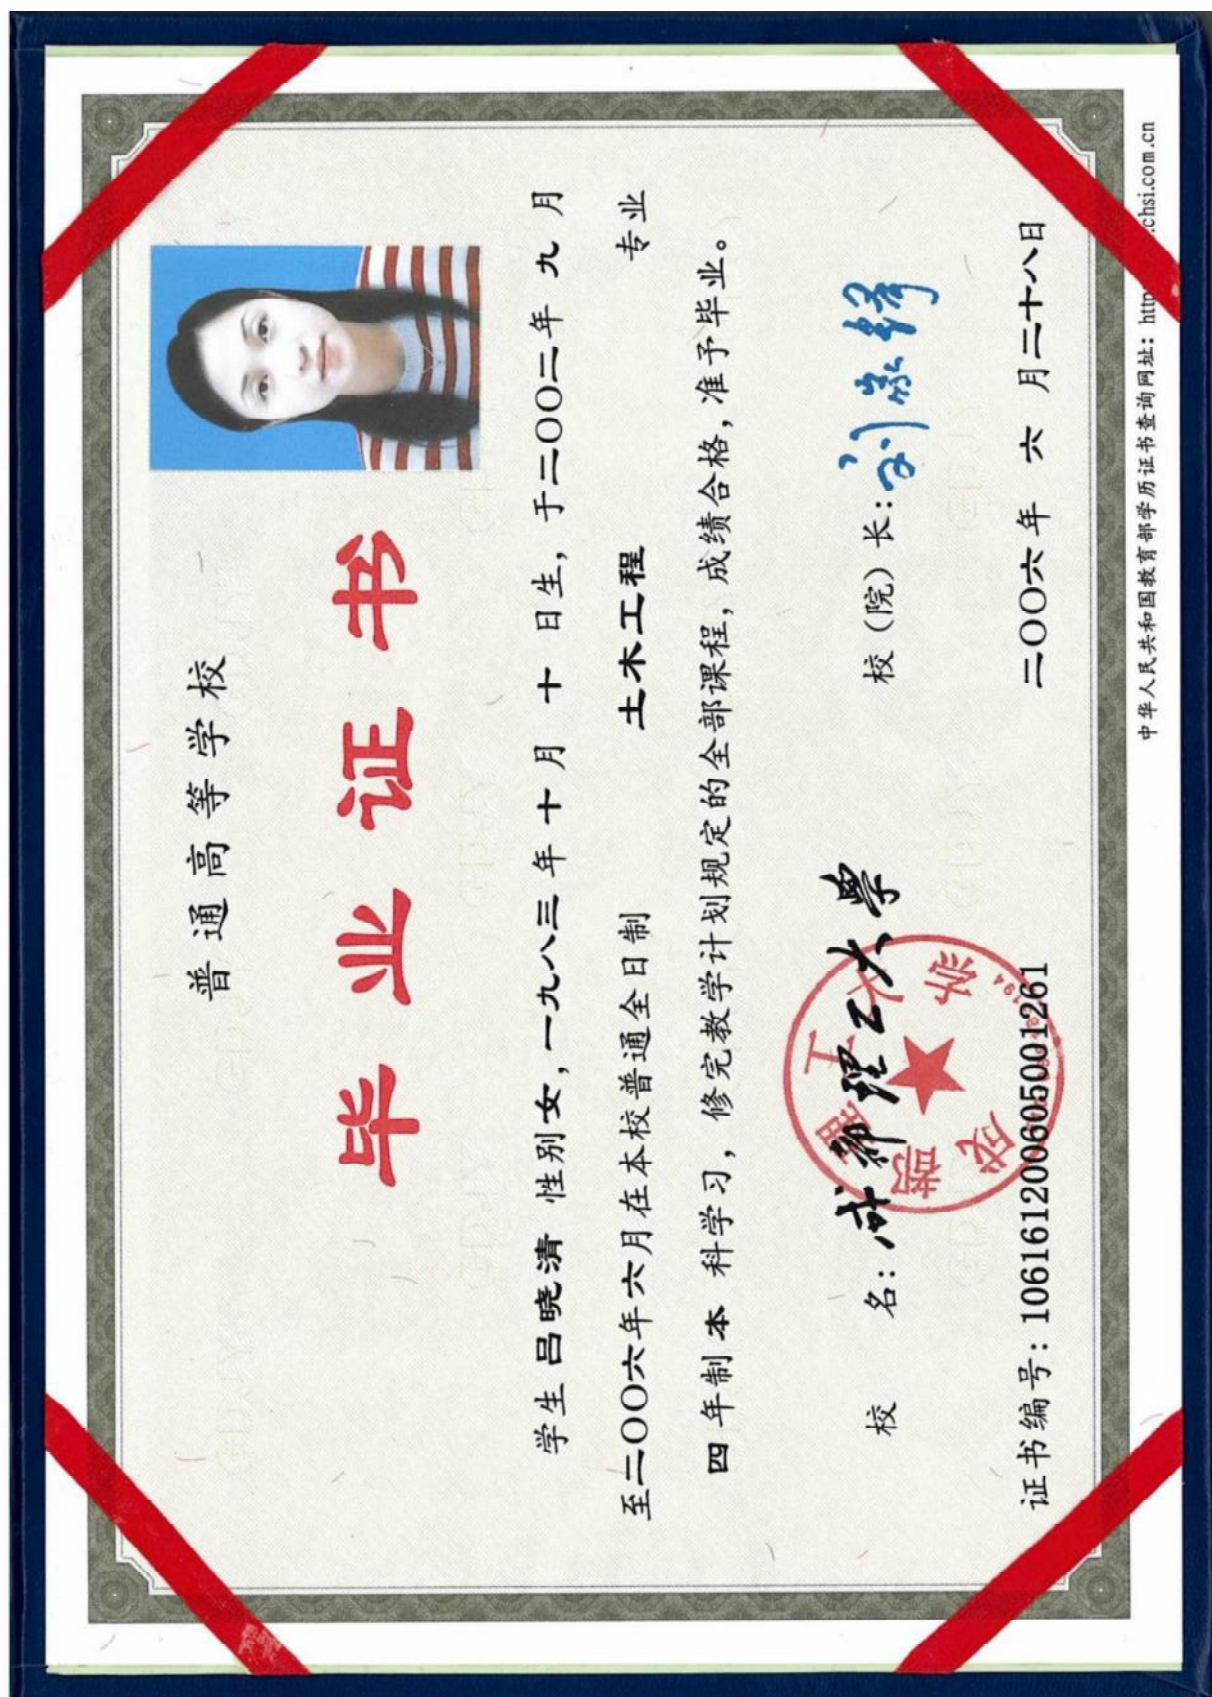 普通高等学校
毕业证书
学生 吕晓清 性别 女, 一九八三 年 十 月 十 日生, 于二〇〇二年 九 月
至二〇〇六年六月在本校普通全日制 土木工程 专业
四 年制 本 科学习, 修完教学计划规定的全部课程, 成绩合格, 准予毕业。
校 名: 成都理工大学 校(院)长: 刘家铎
成都理工大学
证书编号: 106161200605001261 二〇〇六年 六 月二十八日
中华人民共和国教育部学历证书查询网址: http .chsi.com.cn